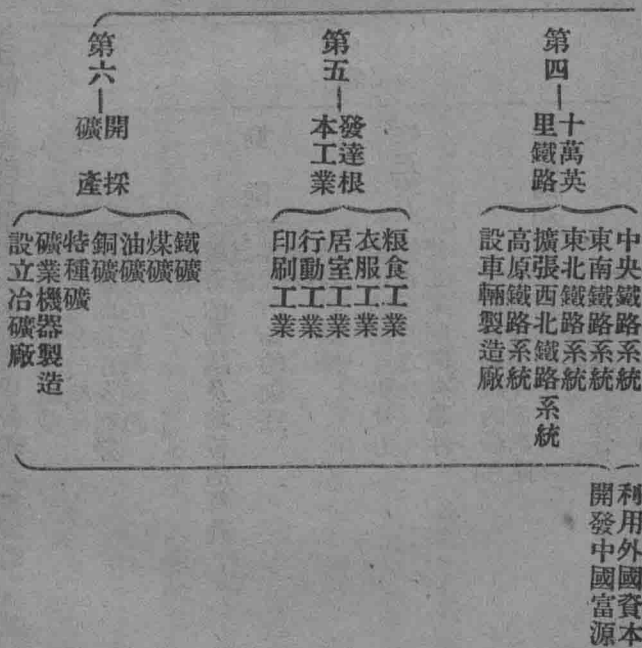 第四—
十萬英
里鐵路
中央鐵路系統
東南鐵路系統
東北鐵路系統
擴張西北鐵路系統
高原鐵路系統
設車輛製造廠
第五—
發達根
本工業
粮食工業
衣服工業
居室工業
行動工業
印刷工業
第六—
開採
礦產
鐵礦
煤礦
油礦
銅礦
特種礦
礦業機器製造
設立冶礦廠
利用外國資本
開發中國富源